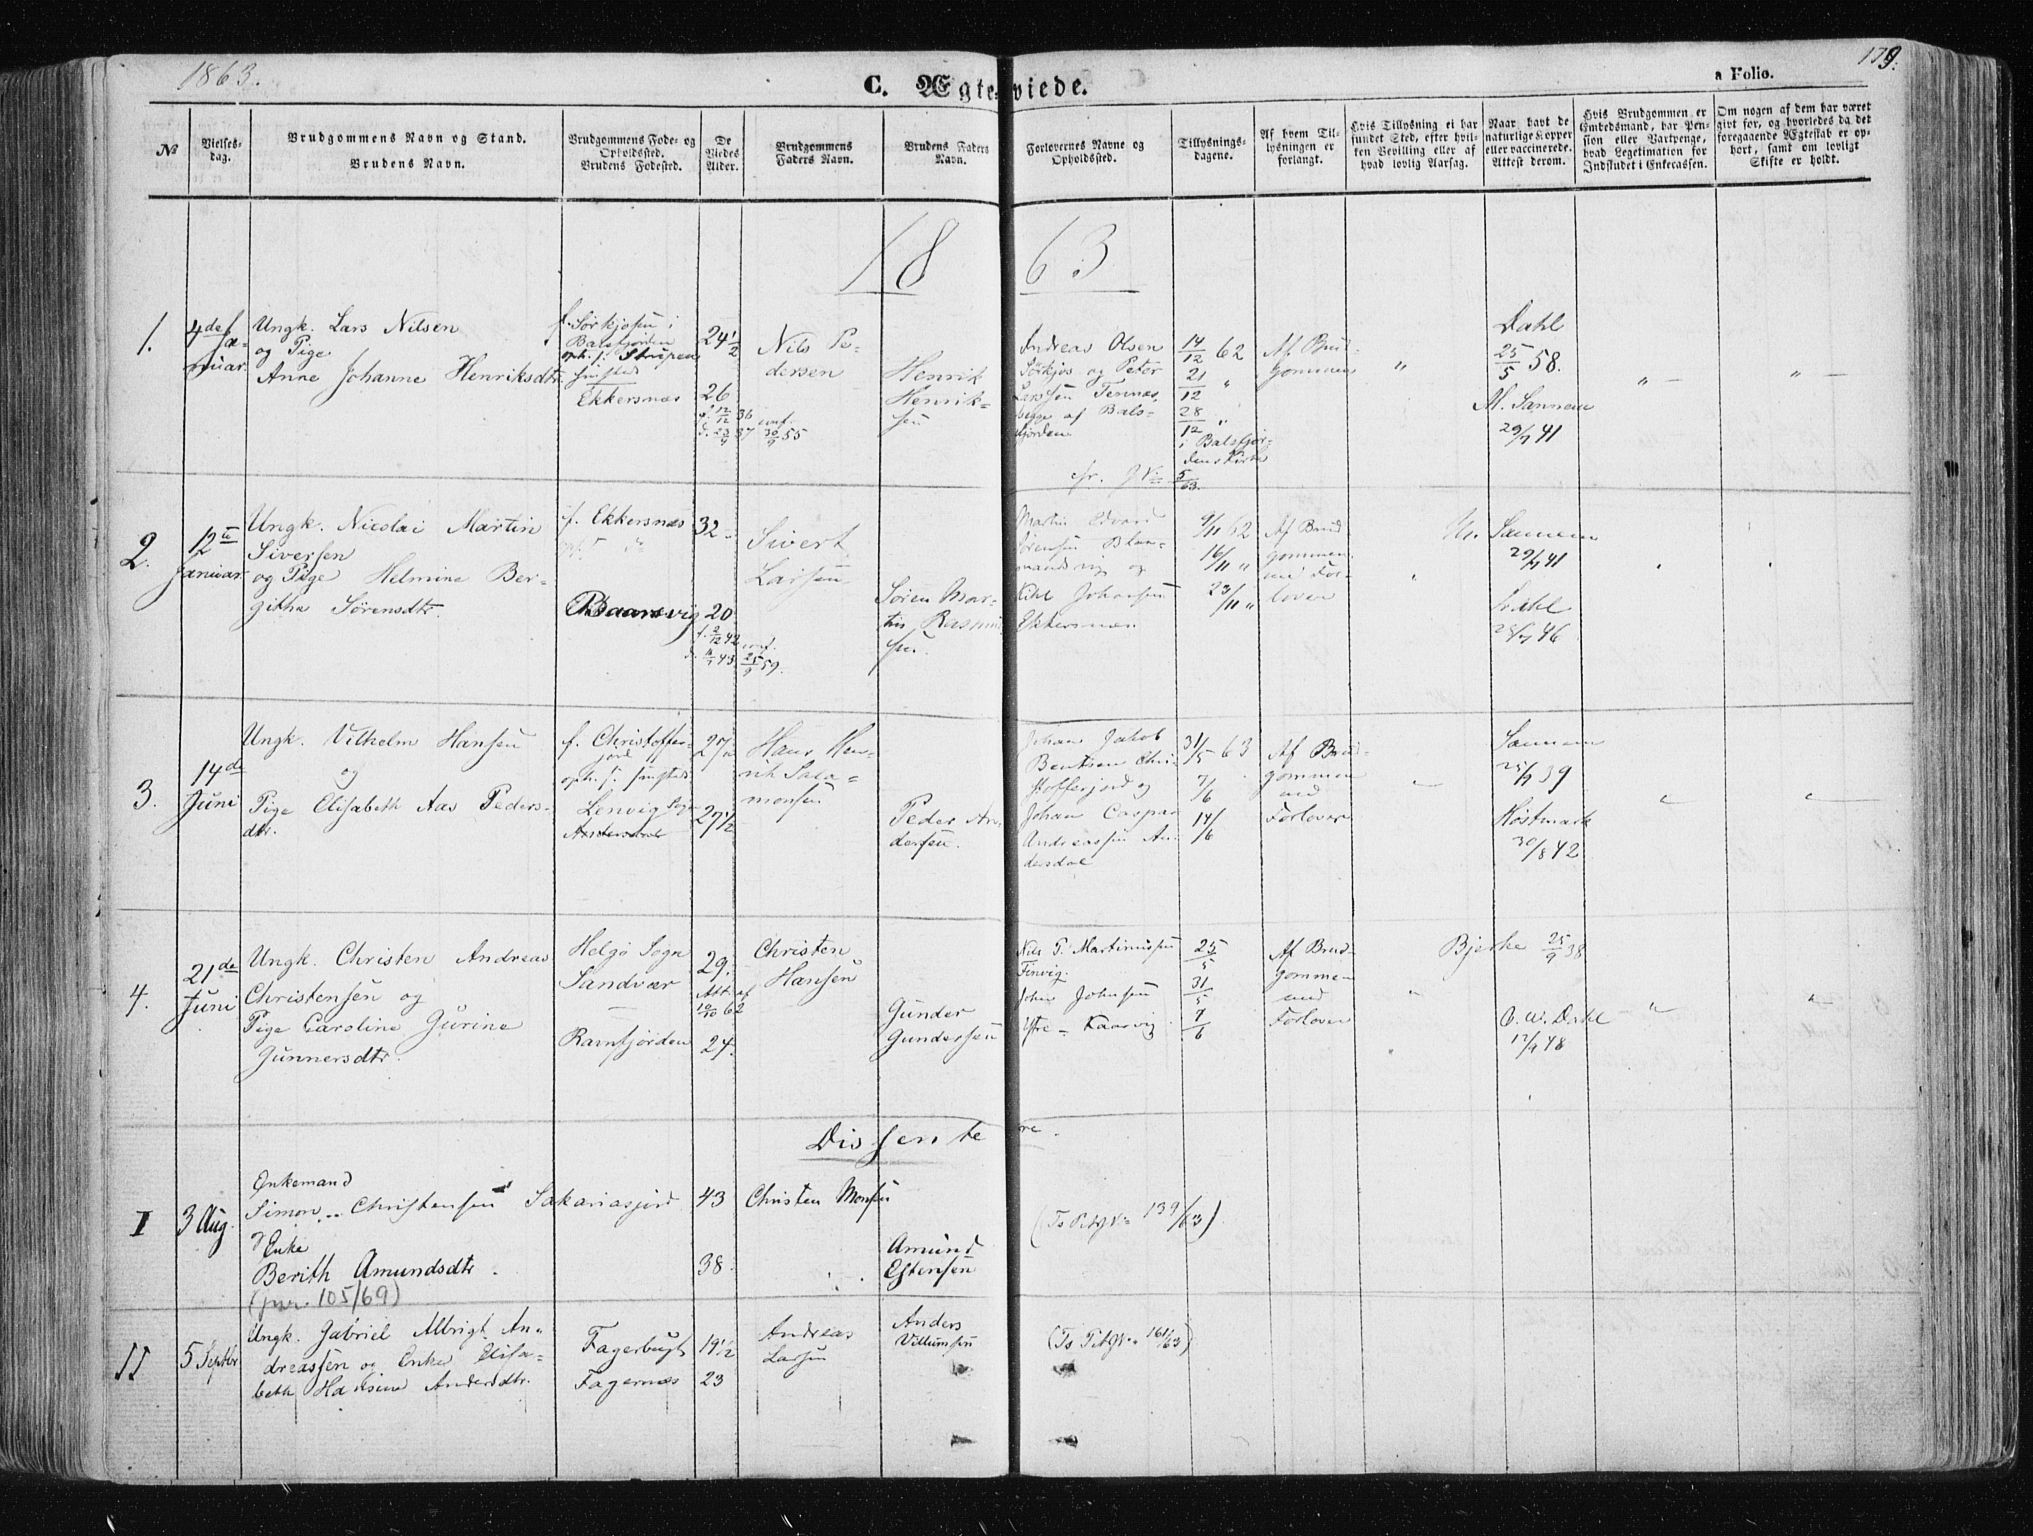 1863.
C. Ægteviede.
a Folio.
179.
№
Vielses-
dag.
Brudgommens Navn og Stand.
Brudens Navn.
Brudgommens Føde- og
Opholdssted.
Brudens Fødested.
De
Viedes
Alder.
Brudgommens
Faders Navn.
Brudens Faders
Navn.
Forlovernes Navne og
Opholdssted.
Tillysnings-
dagene.
Af hvem Til-
lysningen er
forlangt.
Hvis Tillysning ei har
fundet Sted, efter hvil-
ken Bevilling eller af
hvad lovlig Aarsag.
Naar havt de
naturlige Kopper
eller vaccinerede.
Attest derom.
Hvis Brudgommen er
Embedsmand, har Pen-
sion eller Vartpenge,
hvad Legetimation for
Indskudet i Enkecassen.
Om nogen af dem har været
givt for, og hvorledes da det
foregaaende Ægteskab er op-
hørt, samt om lovligt
Skifte er holdt.
1863
1.
4de
Ja-
nuar
Ungk. Lars Nilsen
og Pige
Anne Johanne Henriksdtr.
f. Sørkjosen i
Balsfjorden
oph. f.
Ekkersnæs
24 1/2
26
f. 12/12 36
d. 23/4 37
conf.
30/9 55
Nils Pe-
dersen
Henrik
Henrik-
sen
Andreas Olsen
Sørkjos og Peter
Larssen Tennæs,
begge af Bals-
fjorden
14/12 62
21/12 "
28/12 "
i Balsfjor-
dens Kirke
cfr. J№ 5/63.
Af Brud-
gommen
"
Dahl
25/5 58.
At. Sannem
29/7 41
"
"
2.
12te
Januar
Ungk. Nicolai Martin
Siversen
og Pige Helmine Ber-
githe Sørensdtr.
f. Ekkersnæs
32
20
f. 2/12 42
conf.
25/9 59.
Sivert
Larsen
Søren Mar-
tin Rasmus-
sen.
Martin Edvard
Sørensen
og
Johansen
Ekkersnæs
9/11 62
16/11 "
23/11 "
Af Brud
gommen
med For-
lover
Sannem
29/7 41
Dahl
46
3.
14de
Juni
Ungk. Vilhelm Hansen
og
Pige Elisabeth Aas Peders-
dtr.
f. Christoffer-
fjord
oph. f.
Lenvig Sogn
27
27 1/2
Hans Hen-
rik Salo-
monsen
Peder An-
dersen.
Johan Jakob
Bentsen Chri-
stofferfjord og
Johan Caspar
Andreassen An-
dersdal
31/5 63
7/6
14/6
Af Brud-
gommen
med
Forlover
Sannem
39
Kostmark
30/8 42
4.
21de
Juni
Ungk. Christen Andreas
Christensen og
Pige Caroline Gurine
Gunnersdtr.
Helgø Sogn
Sandvær
Ramfjorden
29.
Att. af
10/10 62
24.
Christen
Hansen
Gunder
Gundersen
Nils P. Martinussen
Finvig.
Johan Johnsen
Ytre-Kaarvig
25/5
31/5
7/6
Af Brud-
gommen
med
Forlover
"
Bjerke 25/9 38
C. W. Dahl
17/9 48
"
"
Dissentere.
I
3 Aug.
Enkemand
Simon Christensen Sakariasjord
Enke
Berith Amundsdtr.
(jnr. 105/69)
43
38.
Christen Monsen
Amund
Estensen
(Ts Pet J№ 139/63)
II
5 Septbr
Ungk. Gabriel Albrigt An-
dreassen og Enke Elisa-
beth Hansine Andersdtr.
Fagerbugt
Fagernæs
19 1/2
23
Andreas
Larsen
Anders
Villumsen
(Ts Pet J№ 161/63)